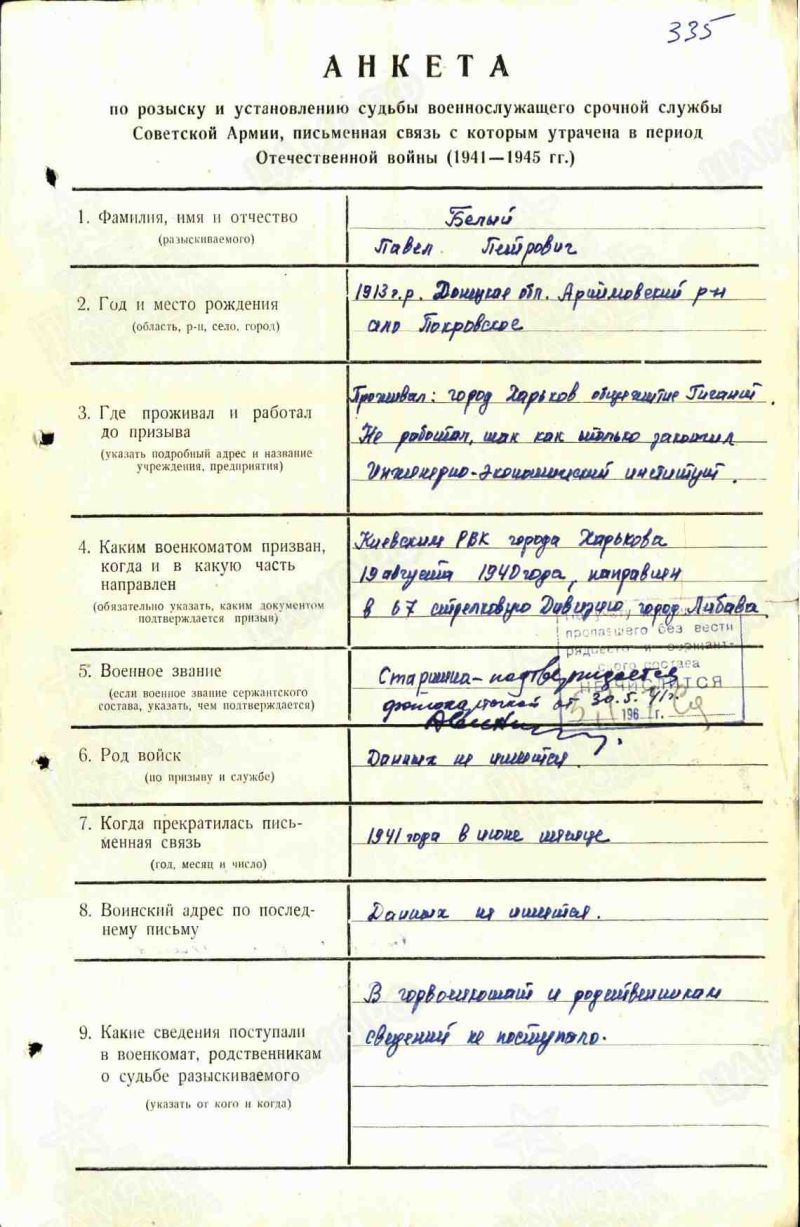 335
АНКЕТА
по розыску и установлению судьбы военнослужащего срочной службы
Советской Армии, письменная связь с которым утрачена в период
Отечественной войны (1941—1945 гг.)
1. Фамилия, имя и отчество
(разыскиваемого)
Белый
Павел Петрович
2. Год и место рождения
(область, р-н, село, город)
1913 г.р. Донецкая обл. р-н
село Покровское
3. Где проживал и работал
до призыва
(указать подробный адрес и название
учреждения, предприятия)
Проживал: город Харьков общежитие Гигант.
Не работал, так как только закончил
Инженерно-экономический институт.
4. Каким военкоматом призван,
когда и в какую часть
направлен
(обязательно указать, каким документом
подтверждается призыв)
Киевским РВК города Харькова
19 августа 1940 года, направлен
в 67 стрелковую Дивизию, город Либава
пропавшего без вести
5. Военное звание
(если военное звание сержантского
состава, указать, чем подтверждается)
Старшина - подтверждается
фотокарточкой от 30.5.41г.
196 г.
6. Род войск
(по призыву и службе)
Данных не имеется.
7. Когда прекратилась пись-
менная связь
(год, месяц и число)
1941 года в июне месяце
8. Воинский адрес по послед-
нему письму
Данных не имеется.
9. Какие сведения поступали
в военкомат, родственникам
о судьбе разыскиваемого
(указать от кого и когда)
В горвоенкомат и родственникам
сведений не поступало.